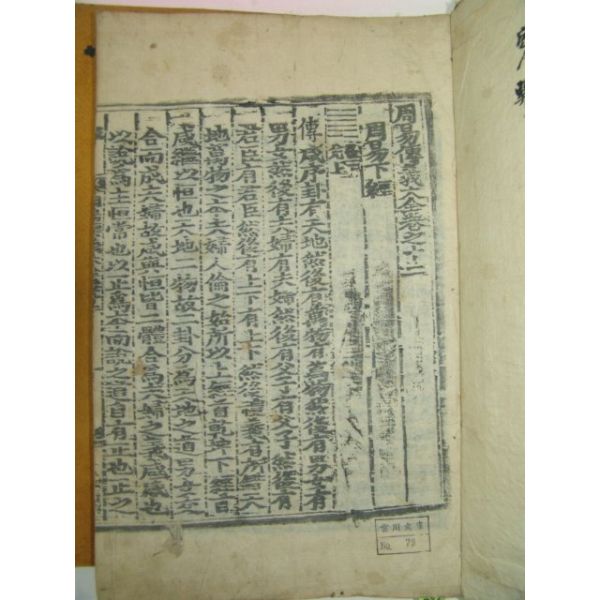 周易傳義大全卷之十二
周易下經
兌上
艮下
傳咸序卦有天地然後有萬物有萬物然後有男女有
男女然後有夫婦有夫婦然後有父子有父子然後有
君臣有君臣然後有上下有上下然後禮義有所錯天
地萬物之本夫婦人倫之始所以上經首乾坤下經首
咸繼以恒也天地二物故二卦分爲天地之道男女交
合而成夫婦故咸與恒皆二體合爲夫婦之義咸感也
以說爲主恒常也以正爲本而說之道自有正也正之
No. 72